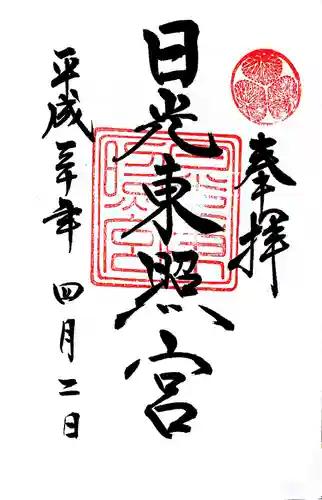 奉拝
日光東照宮
平成二十年四月二日